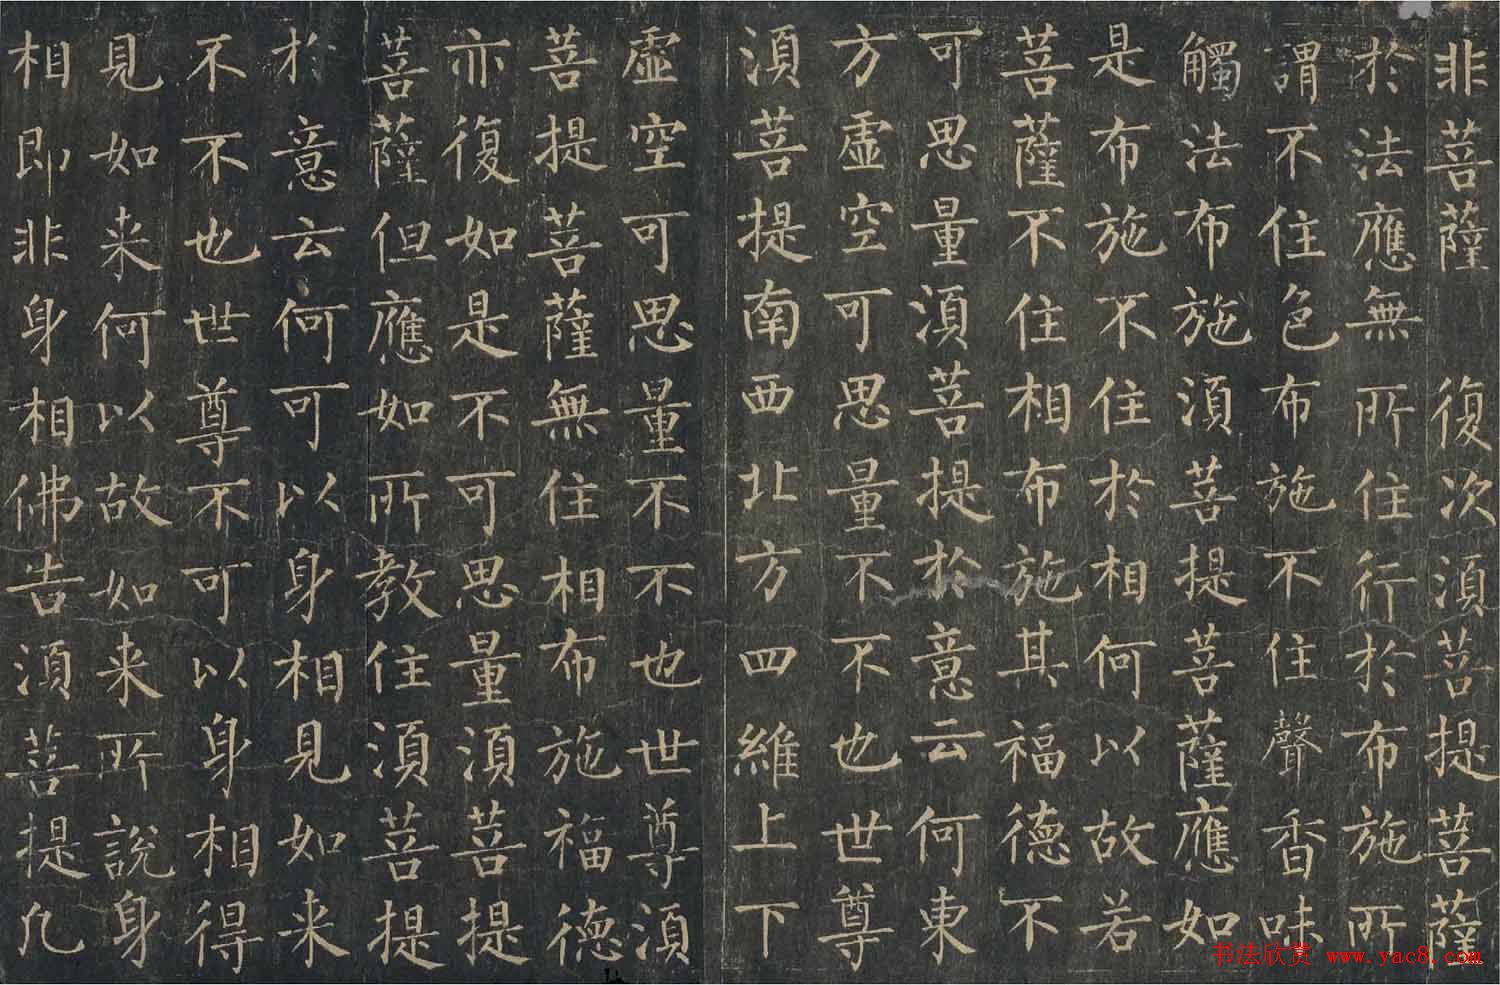 非菩薩 復次須菩提菩薩
於法應無所住行於布施所
謂不住色布施不住聲香味
觸法布施須菩提菩薩應如
是布施不住於相何以故若
菩薩不住相布施其福德不
可思量須菩提於意云何東
方虛空可思量不不也世尊
須菩提南西北方四維上下
虛空可思量不不也世尊須
菩提菩薩無住相布施福德
亦復如是不可思量須菩提
菩薩但應如所教住須菩提
於意云何可以身相見如来
不不也世尊不可以身相得
見如来何以故如来所說身
相即非身相佛告須菩提凡
书法欣赏 www.yac8.com